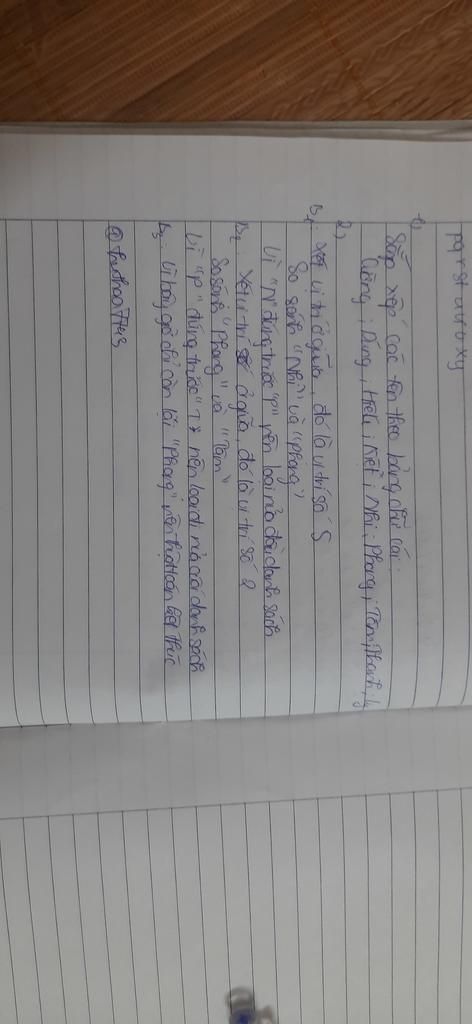 pqrstuvoxy
1)
Sắp xếp các tên theo bảng chữ cái:
Cường; Dũng; Hiếu; Kiệt; Nhi; Phong; Tâm; Thanh;
2)
B1: Xét vị trí ở giữa, đó là vị trí số 5
So sánh "Nhi" và "Phong"
Vì "N" đứng trước "P" nên loại nửa đầu danh sách
B2: Xét vị trí số ở giữa, đó là vị trí số 2
So sánh "Phong" và "Tâm"
Vì "P" đứng trước "T" nên loại đi nửa cuối danh sách
B3: Vì bây giờ chỉ còn lại "Phong" nên thuật toán kết thúc